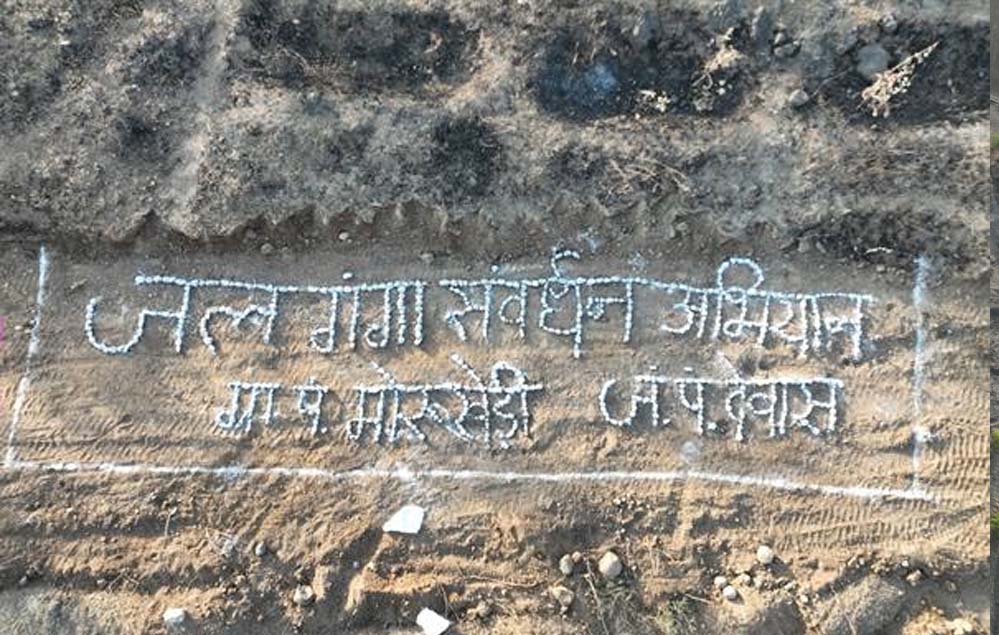 जल गंगा संवर्धन अभियान
ग्रा.पं. मोरूखेड़ी जं.पं.देवास